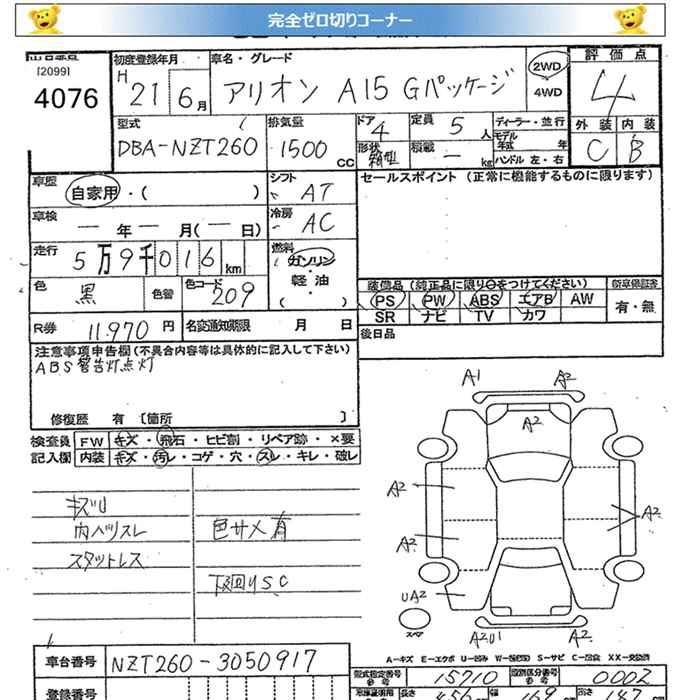 完全ゼロ切りコーナー
出品番号 初度登録年月 車名・グレード 評価点
[2099] 4076 H 21 6月 アリオン A15 Gパッケージ 2WD 4WD 4
型式 排気量 ドア 4 定員 5人 ディーラー・並行 外装 内装
DBA-NZT260 1500 CC 形状 箱型 積載 — kg モデル年式 年 ハンドル 左・右 C B
車歴 自家用・( ) シフト AT セールスポイント (正常に機能するものに限ります)
車検 — 年 — 月(— 日) 冷房 AC
走行 5万9千016km 燃料 ガソリン・軽油 ( )
色 黒 色替 色コード 209 装備品 (純正品に限り○をつけてください) 新車保証書
PS PW ABS エアB AW 有・無
SR ナビ TV カワ
R券 11,970 円 名変通知期限 月 日 後日品
注意事項申告欄(不具合内容等は具体的に記入して下さい)
ABS警告灯点灯
修復歴 有 [箇所 ]
検査員 FW キズ・飛石・ヒビ割・リペア跡・×要
記入欄 内装 キズ・汚レ・コゲ・穴・スレ・キレ・破レ
A1 A2
A2
キズU
内ハリスレ 色サメ有
スタットレス
下廻りSC
A2 A2
A2
UA2
スペア A2U1 A2
A-キズ E-エクボ U-凹み W-波(板金) S-サビ C-腐食 XX-交換済
車台番号 NZT260-3050917 型式指定番号 参考 15710 類別区分番号 参考 0002
登録番号 長さ 456 幅 169 高さ 147